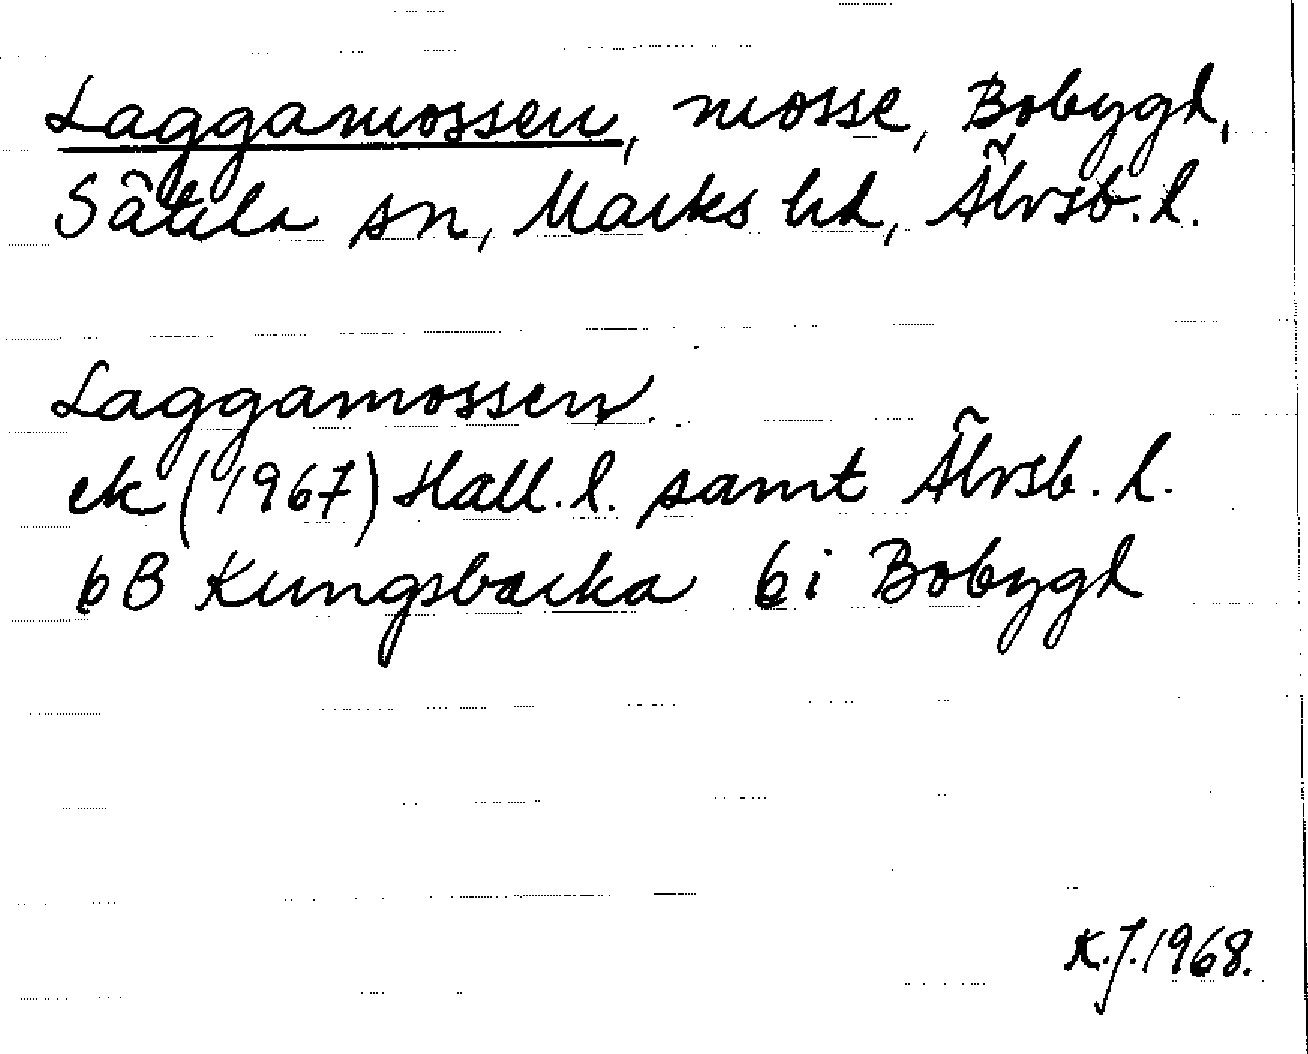 Laggamossen, mosse, Bobygd,
Sätila sn, Marks hd, Älvsb. l.
Laggamossen.
ek (1967) Hall. l. samt Älvsb. l.
6B Kungsbacka 6i Bobygd
K.J. 1968.